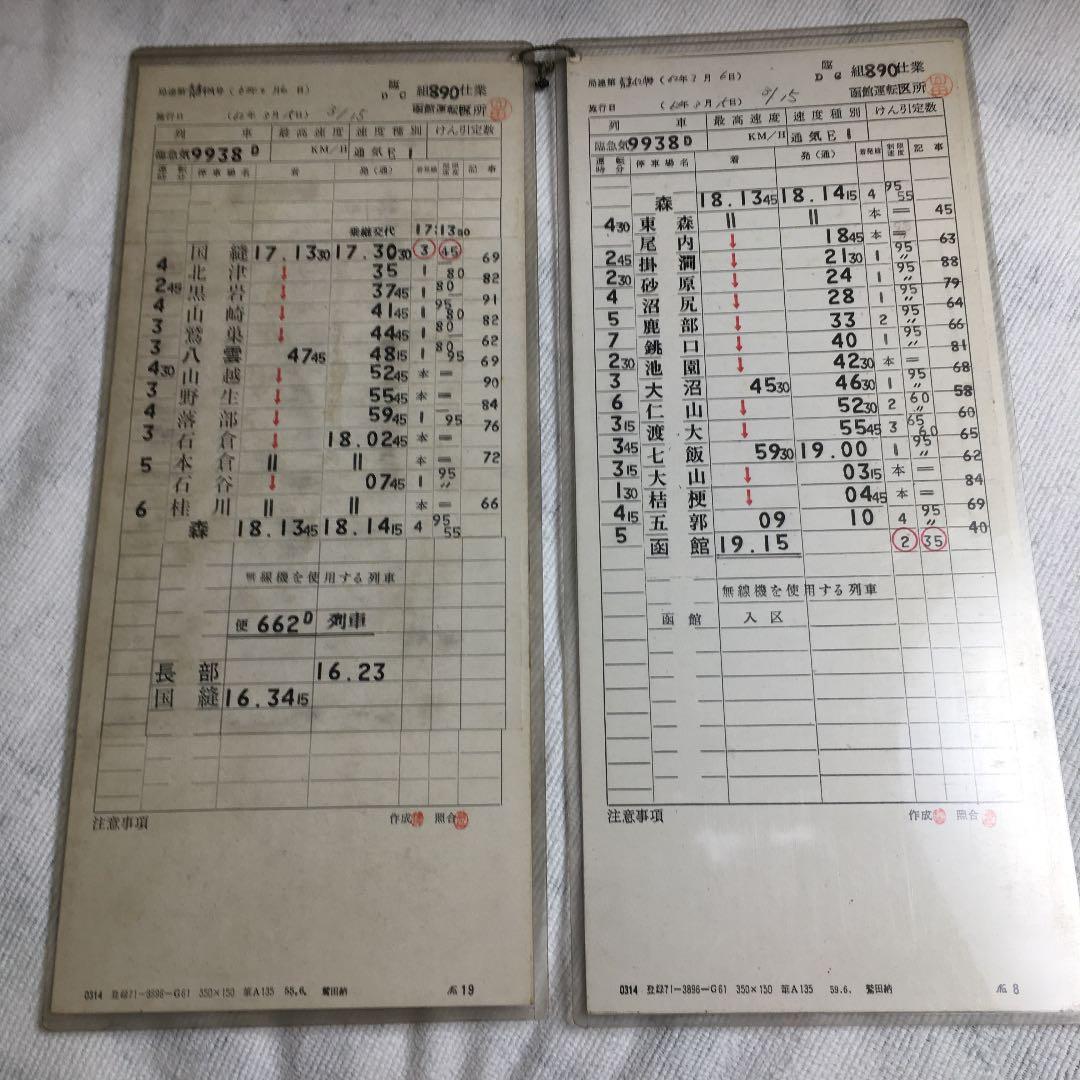 臨
DC 組890仕業
函館運転区所
施行日
列車 最高速度 速度種別 けん引定数
臨急気9938D KM/H 通気E1
運転時分 停車場名 着 発(通) 着発線 制限速度 記事
乗継交代 17:13 30
国縫 17.13 30 17.30 30 3 45
4 北津 ↓ 35 1 80 69
2 45 黒岩 ↓ 37 45 1 80 82
4 山崎 ↓ 41 45 1 95 80 91
3 鷲巣 ↓ 44 45 1 80 82
3 八雲 47 45 48 15 1 80 95 62
4 30 山越 ↓ 52 45 本 = 69
3 野生 ↓ 55 45 本 = 90
4 落部 ↓ 59 45 1 95 84
3 石倉 ↓ 18.02 45 本 = 76
5 本石倉 || || 本 = 72
石谷 ↓ 07 45 1 95 〃
6 桂川 || || 本 = 66
森 18.13 45 18.14 15 4 95 55
無線機を使用する列車
便662D 列車
長部 16.23
国縫 16.34 15
注意事項 作成 照合
0314 登録71-3896-G61 350×150 第A135 55.6. 鷲田納 19
臨
DC 組890仕業
函館運転区所
施行日 3/15
列車 最高速度 速度種別 けん引定数
臨急気9938D KM/H 通気E1
運転時分 停車場名 着 発(通) 着発線 制限速度 記事
森 18.13 45 18.14 15 4 95 55
4 30 東森 || || 本 = 45
尾内 ↓ 18 45 本 =
2 45 掛澗 ↓ 21 30 1 95 〃 63
2 30 砂原 ↓ 24 1 95 〃 88
4 沼尻 ↓ 28 1 95 〃 79
5 鹿部 ↓ 33 2 95 〃 64
7 銚口 ↓ 40 1 95 〃 66
2 30 池園 ↓ 42 30 本 = 81
3 大沼 45 30 46 30 1 95 〃 68
6 仁山 ↓ 52 30 2 60 〃 58
3 15 渡大 ↓ 55 45 3 65 60 60
3 45 七飯 59 30 19.00 1 95 〃 65
3 15 大山 ↓ 03 15 本 = 62
1 30 桔梗 ↓ 04 45 本 = 84
4 15 五郭 09 10 4 95 〃 69
5 函館 19.15 2 35 40
無線機を使用する列車
函館 入区
注意事項 作成 照合
0314 登録71-3896-G61 350×150 第A135 59.6. 鷲田納 8